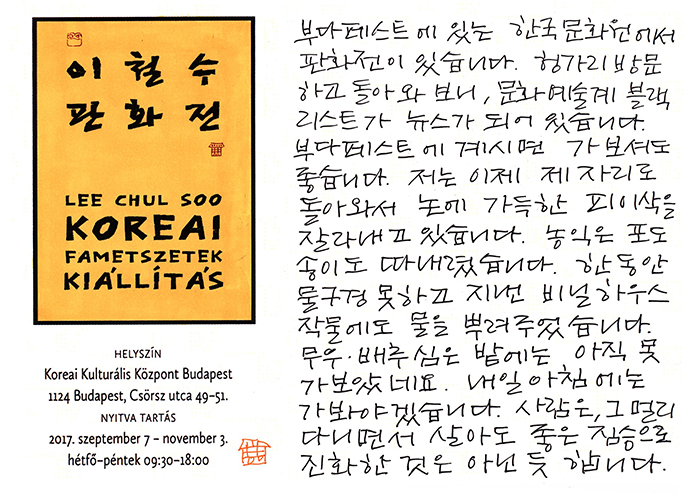 이 철 수
판 화 전
LEE CHUL SOO
KOREAI
FAMETSZETEK
KIÁLLÍTÁS
HELYSZÍN
Koreai Kulturális Központ Budapest
1124 Budapest, Csörsz utca 49–51.
NYITVA TARTÁS
2017. szeptember 7 – november 3.
hétfő–péntek 09:30–18:00
부다페스트에 있는 한국문화원에서
판화전이 있습니다. 헝가리 방문
하고 돌아와 보니, 문화예술계 블랙
리스트가 뉴스가 되어 있습니다.
부다페스트에 계시면 가보셔도
좋습니다. 저는 이제 제자리로
돌아와서 논에 가득한 피이삭을
잘라내고 있습니다. 농익은 포도
송이도 따내렸습니다. 한동안
물구경 못하고 지낸 비닐하우스
작물에도 물을 뿌려주었습니다.
무우·배추 심은 밭에는 아직 못
가보았네요. 내일 아침에는
가봐야겠습니다. 사람은, 그 멀리
다니면서 살아도 좋은 짐승으로
진화한 것은 아닌 듯 합니다.